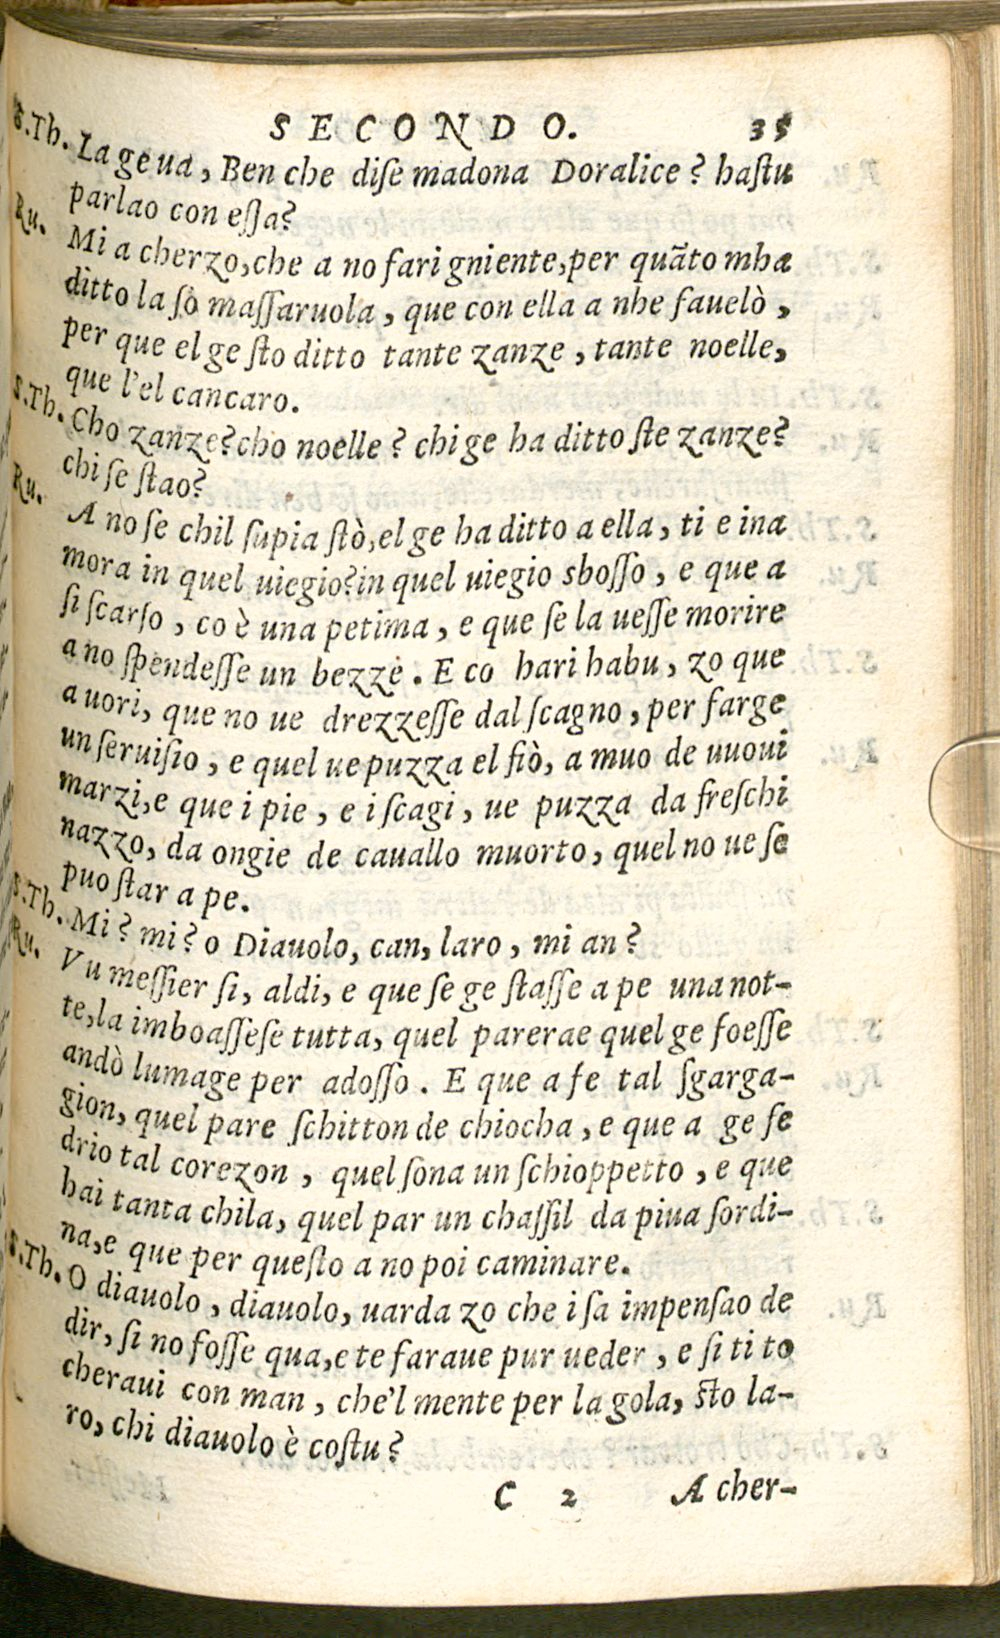 SECONDO. 35
S.Th. La ge ua, Ben che diſe madona Doralice? haſtu
parlao con eſſa?
Ru. Mi a cherzo, che a no fari gniente, per quãto mha
ditto la ſò maſſaruola, que con ella a nhe fauelò,
per que el ge ſto ditto tante zanze, tante noelle,
que l'el cancaro.
S.Th. Cho zanze? cho noelle? chi ge ha ditto ſte zanze?
chi ſe ſtao?
Ru. A no ſe chil ſupia ſtò, el ge ha ditto a ella, ti e ina
mora in quel uiegio? in quel uiegio sboſſo, e que a
ſi ſcarſo, co è una petima, e que ſe la ueſſe morire
a no ſpendeſſe un bezze. E co hari habu, zo que
a uori, que no ue drezzeſſe dal ſcagno, per farge
un ſeruiſio, e quel ue puzza el fiò, a muo de uuoui
marzi, e que i pie, e i ſcagi, ue puzza da freſchi
nazzo, da ongie de cauallo muorto, quel no ue ſe
puo ſtar a pe.
S.Th. Mi? mi? o Diauolo, can, laro, mi an?
Ru. Vu meſſier ſi, aldi, e que ſe ge ſtaſſe a pe una not-
te, la imboaſſeſe tutta, quel parerae quel ge foeſſe
andò lumage per adoſſo. E que a fe tal ſgarga-
gion, quel pare ſchitton de chiocha, e que a ge ſe
drio tal corezon, quel ſona un ſchioppetto, e que
hai tanta chila, quel par un chaſſil da piua ſordi-
na, e que per queſto a no poi caminare.
S.Th. O diauolo, diauolo, uarda zo che i ſa impenſao de
dir, ſi no foſſe qua, e te faraue pur ueder, e ſi ti to
cheraui con man, che'l mente per la gola, ſto la-
ro, chi diauolo è coſtu?
C 2 A cher-